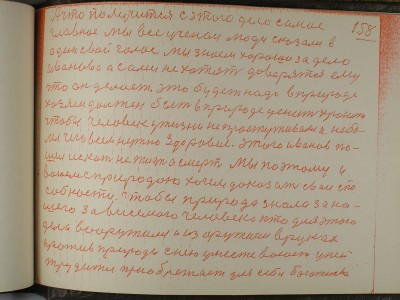 А что получится с этого дело самое 158
главное мы все ученои люди сказали в
один свой голос мы знаем хорошо за дело
иванова а сами не хотят доверятся ему
что он делает. это будет надо в природе
хозяин должен быть в природе ценет хранить
чтобы человек у жизни не простуживался не бо-
лял человек нужно здоровие. этого иванов по-
шел искат не
смерт мы поэтому и
воюем с природою хочем доказат свои спо-
собности. чтобы природа знала за на-
шего зависимого человека что для этого
дела вооружился из оружием в руках
против природы с нею вместе воюет у ней
трудится приобретает для себя богатства